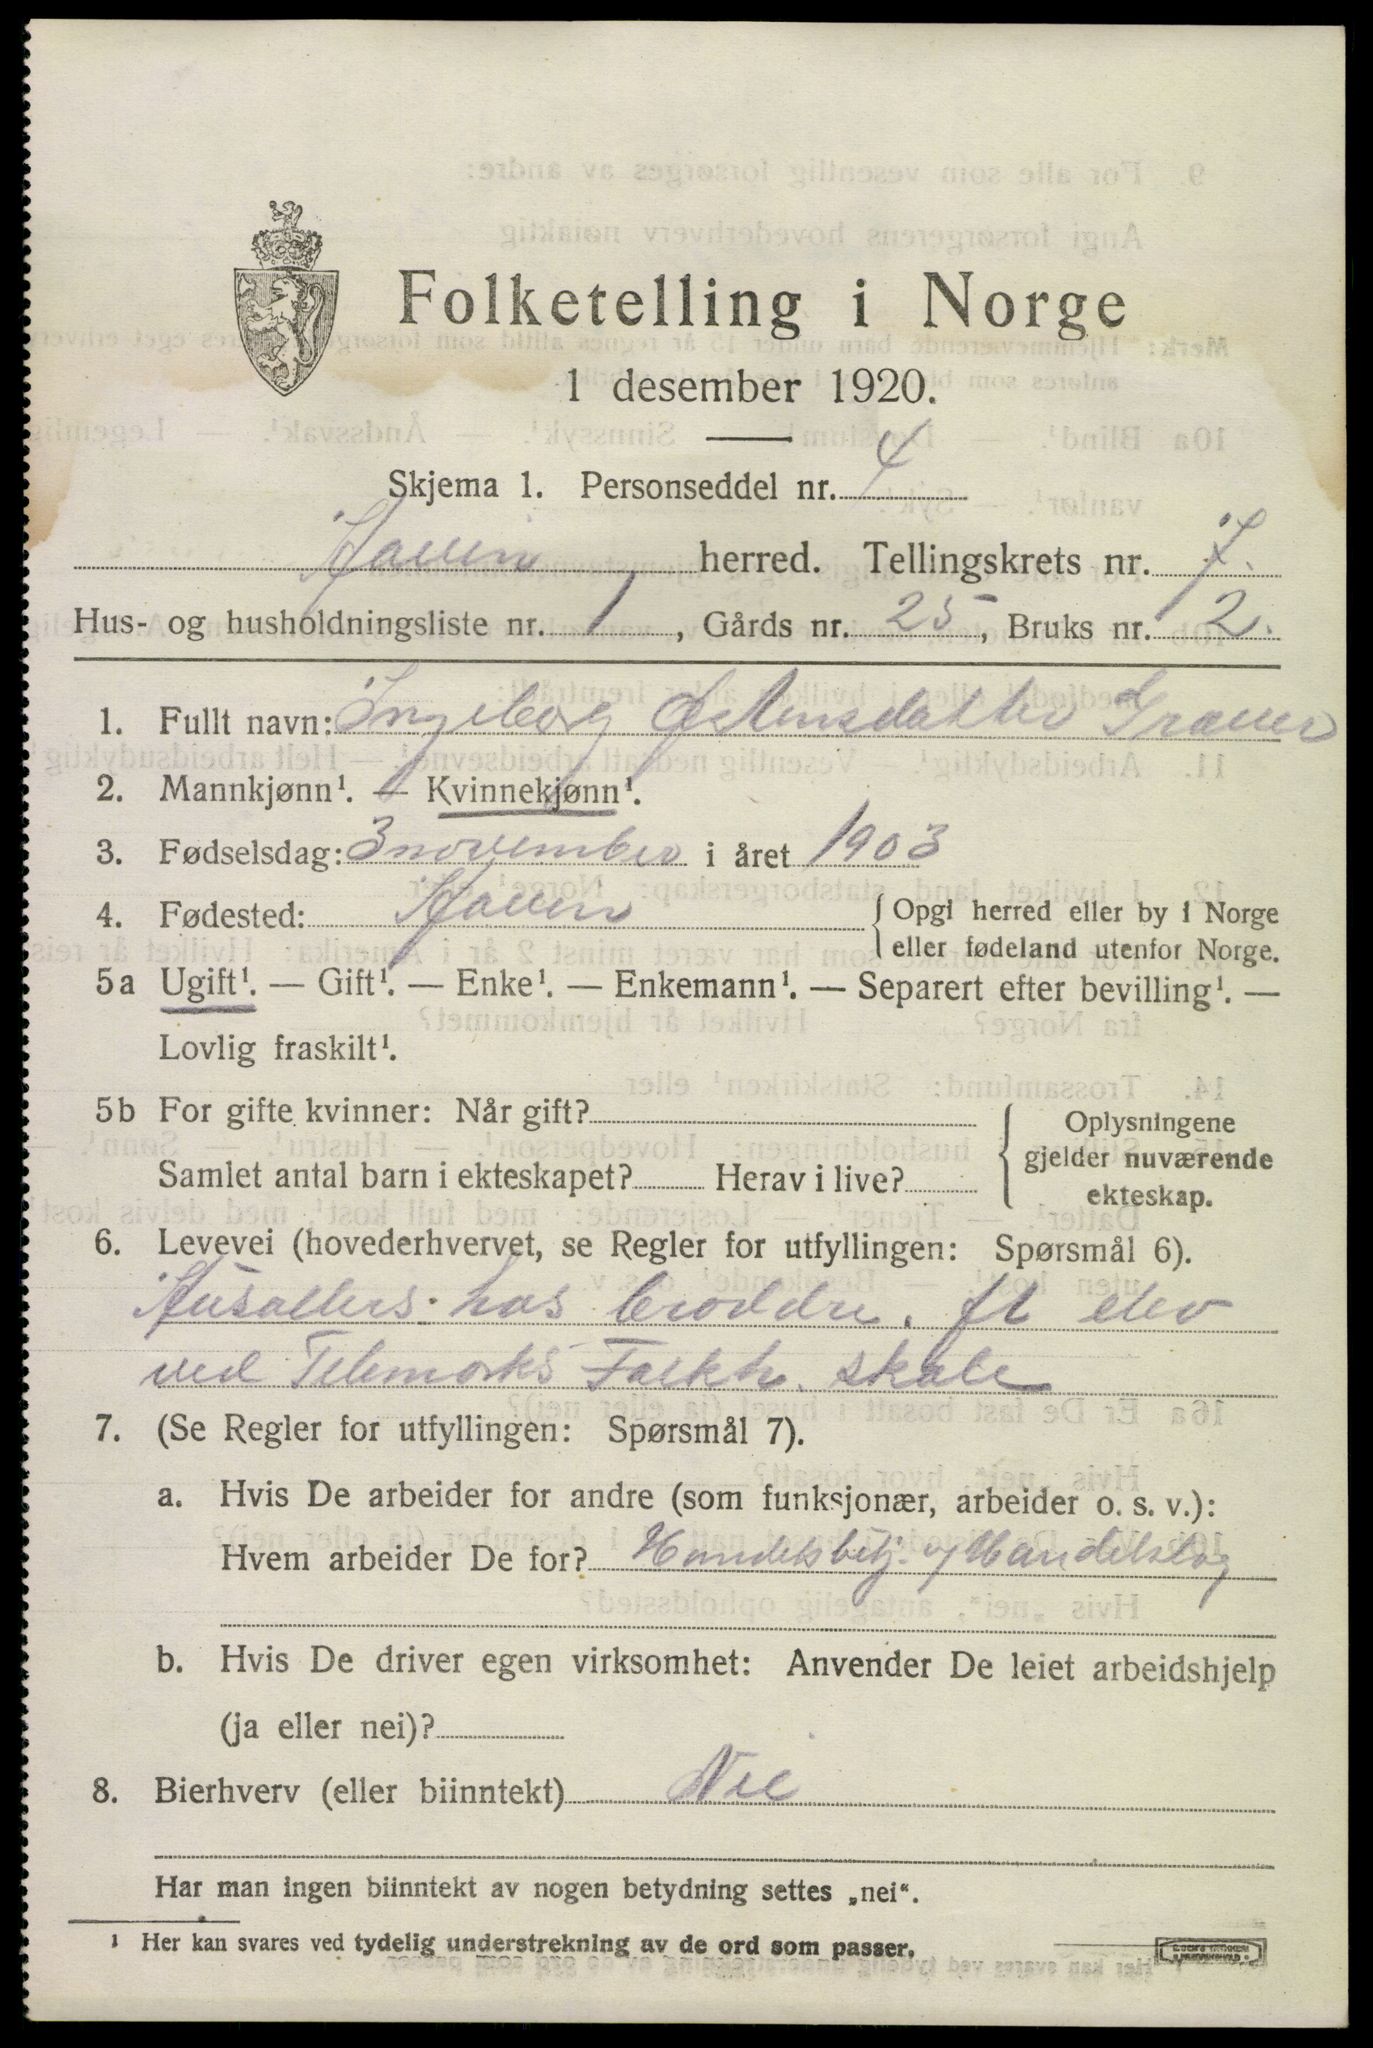 Folketelling i Norge
1 desember 1920.
Skjema 1. Personseddel nr. 4
Hovin herred. Tellingskrets nr. 7.
Hus- og husholdningsliste nr. 1, Gårds nr. 25, Bruks nr. 2.
1. Fullt navn: Ingeborg Østensdatter Graver
2. Mannkjønn¹. — Kvinnekjønn¹.
3. Fødselsdag: 3 november i året 1903
4. Fødested: Hovin { Opgi herred eller by i Norge
eller fødeland utenfor Norge.
5a Ugift¹. — Gift¹. — Enke¹. — Enkemann¹. — Separert efter bevilling¹. —
Lovlig fraskilt¹.
5b For gifte kvinner: Når gift?
Samlet antal barn i ekteskapet? Herav i live?
{ Oplysningene
gjelder nuværende
ekteskap.
6. Levevei (hovederhvervet, se Regler for utfyllingen: Spørsmål 6).
hos elev
ved Telemarks skole
7. (Se Regler for utfyllingen: Spørsmål 7).
a. Hvis De arbeider for andre (som funksjonær, arbeider o. s. v.):
Hvem arbeider De for? Handelsbetj. Handelslag
b. Hvis De driver egen virksomhet: Anvender De leiet arbeidshjelp
(ja eller nei)?
8. Bierhverv (eller biinntekt) Nei
Har man ingen biinntekt av nogen betydning settes „nei“.
¹ Her kan svares ved tydelig understrekning av de ord som passer.